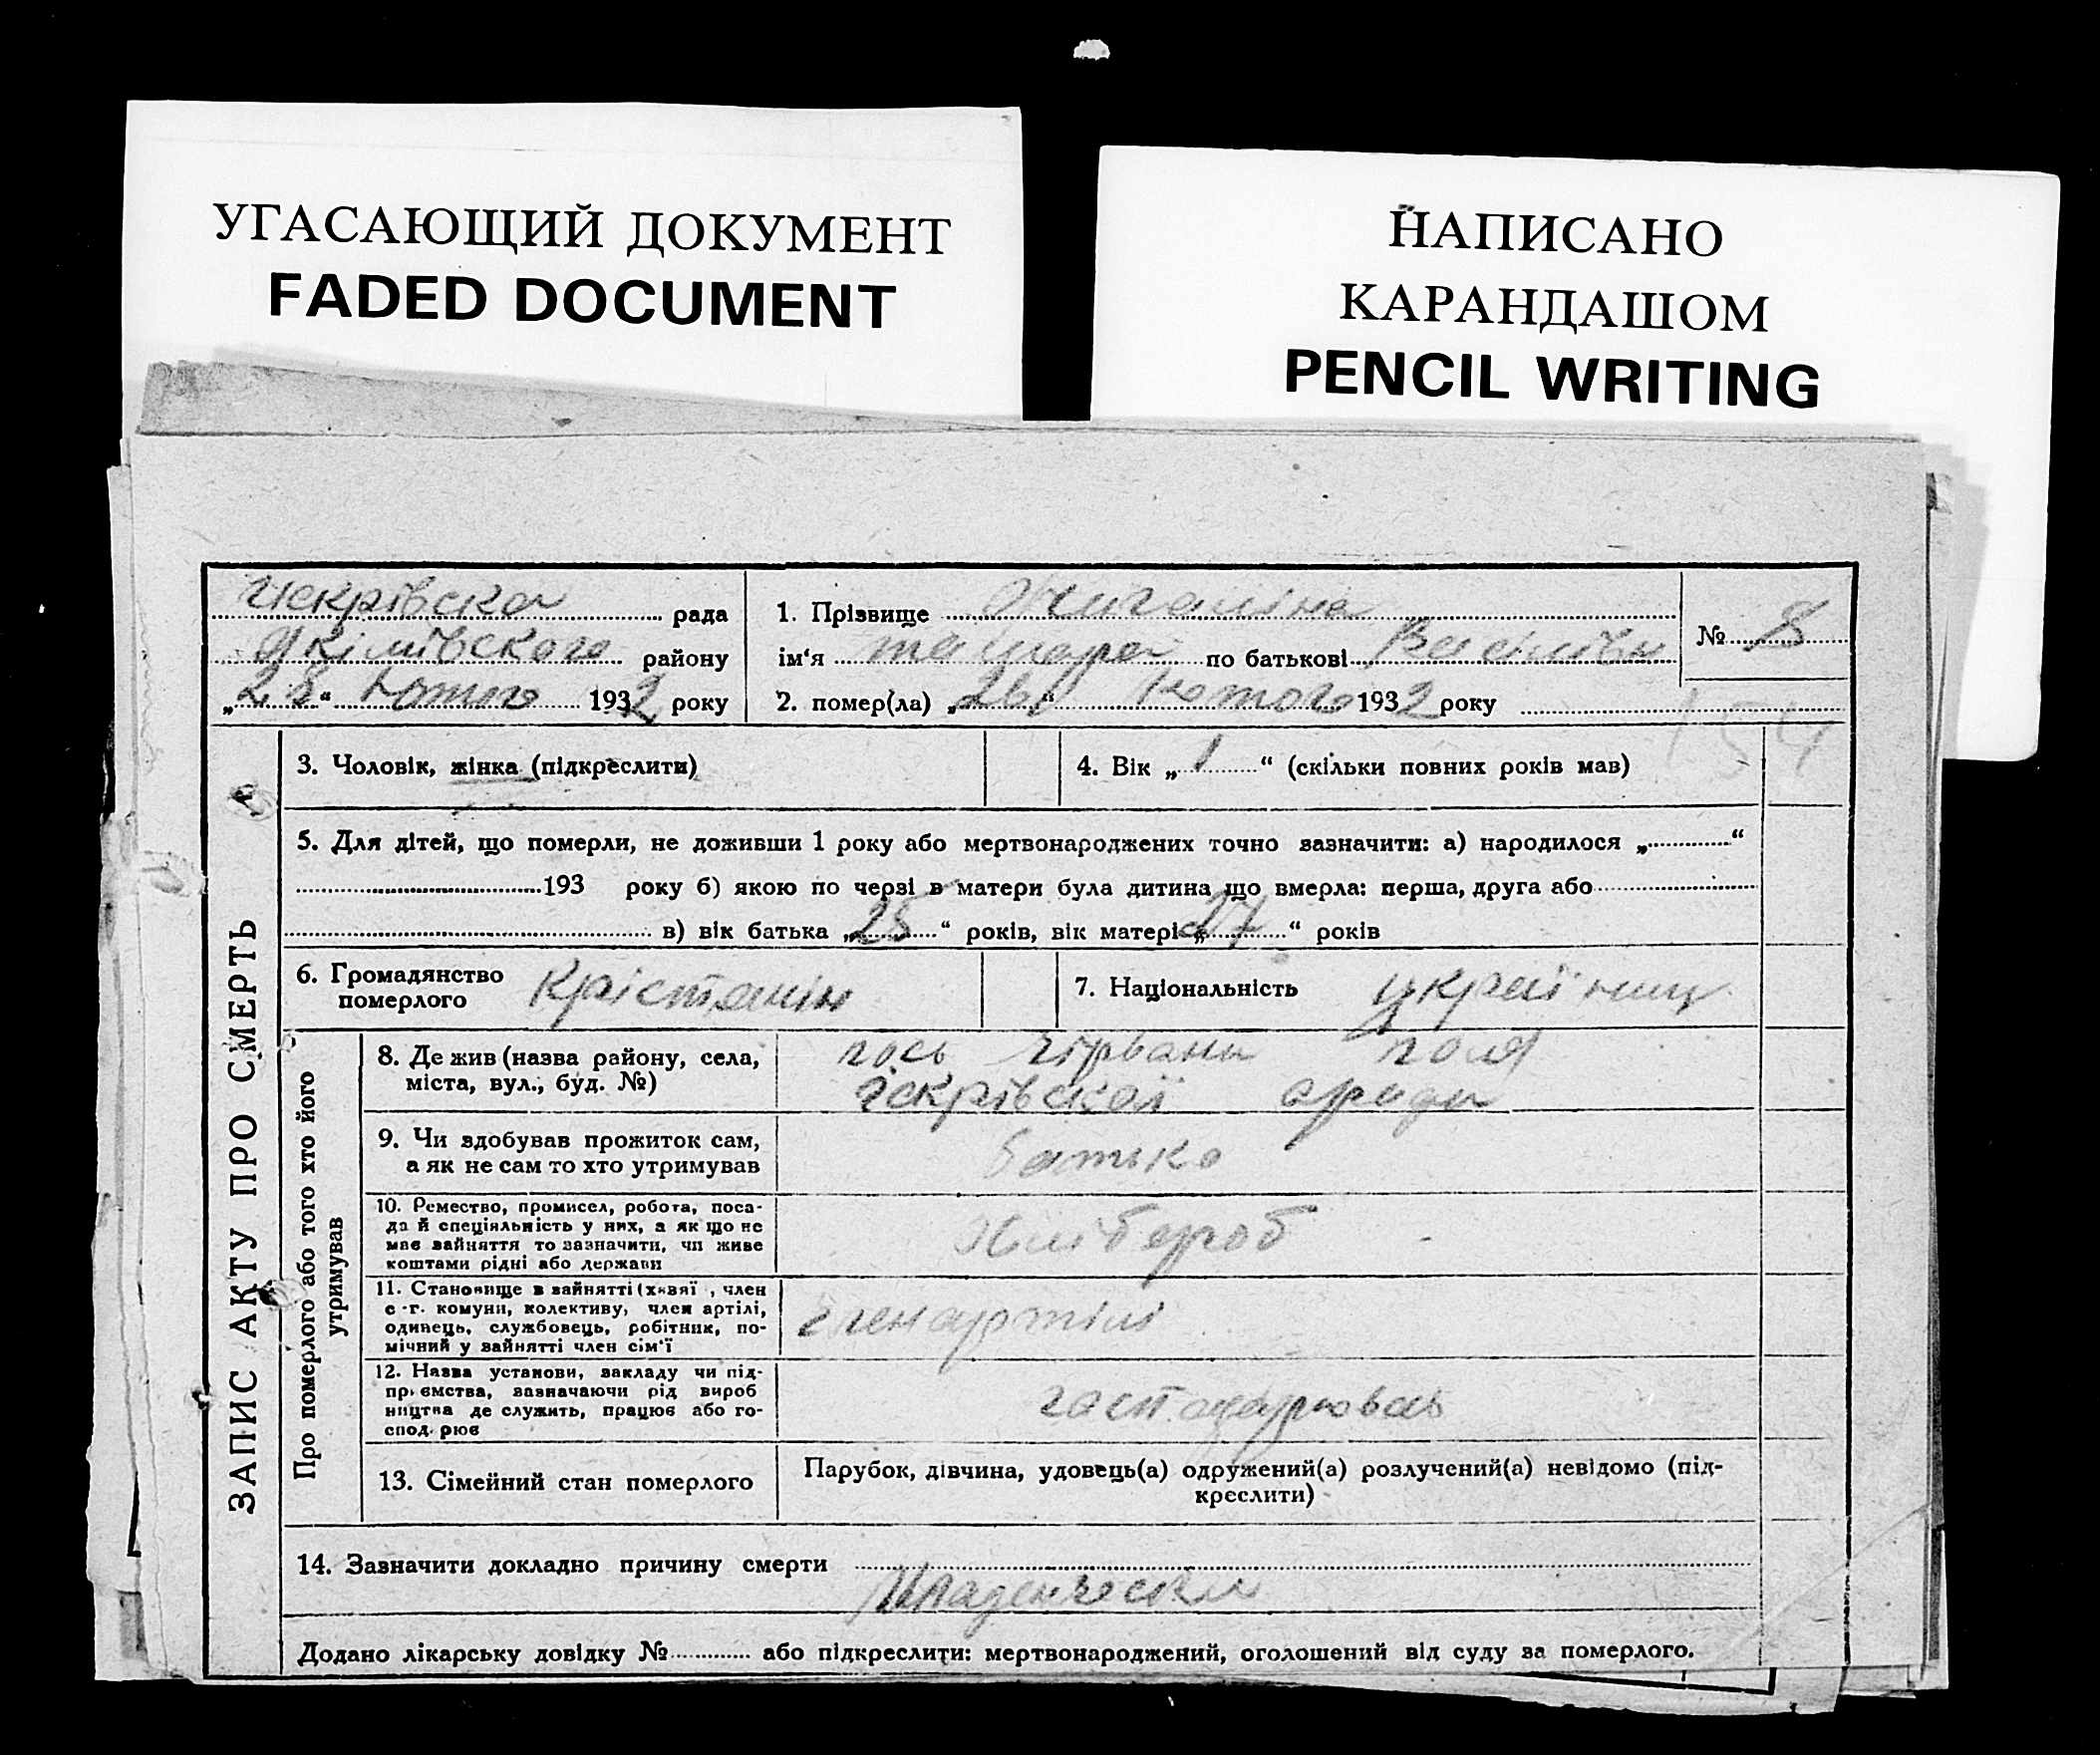 УГАСАЮЩИЙ ДОКУМЕНТ
FADED DOCUMENT
НАПИСАНО
КАРАНДАШОМ
PENCIL WRITING
рада
Якімівського району
„28“ Лютого 1932 року
1. Прізвище
ім‘я по батькові
2. помер(ла) „26“ Лютого 1932 року
№ 8
154
3. Чоловік, жінка (підкреслити)
4. Вік „1“ (скільки повних років мав)
5. Для дітей, що померли, не доживши 1 року або мертвонароджених точно зазначити: а) народилося „ “
193 року б) якою по черзі в матери була дитина що вмерла: перша, друга або
в) вік батька „25“ років, вік матері „27“ років
6. Громадянство
померлого
7. Національність
ЗАПИС АКТУ ПРО СМЕРТЬ
Про померлого або того хто його
утримував
8. Де жив (назва району, села,
міста, вул., буд. №)
9. Чи здобував прожиток сам,
а як не сам то хто утримував
батько
10. Ремество, промисел, робота, поса-
да й спеціяльність у них, а як що не
має зайняття то зазначити, чи живе
коштами рідні або держави
Хлібероб
11. Становище в зайнятті (хазяї , член
с-г. комуни, колективу, член артілі,
одинець, службовець, робітник, по-
мічний у зайнятті член сім‘ї
член артілі
12. Назва установи, закладу чи під-
приємства, зазначаючи рід вироб
ництва де служить, працює або го-
сподарює
13. Сімейний стан померлого
Парубок, дівчина, удовець(а) одружений(а) розлучений(а) невідомо (під-
креслити)
14. Зазначити докладно причину смерти
Додано лікарську довідку № або підкреслити: мертвонароджений, оголошений від суду за померлого.